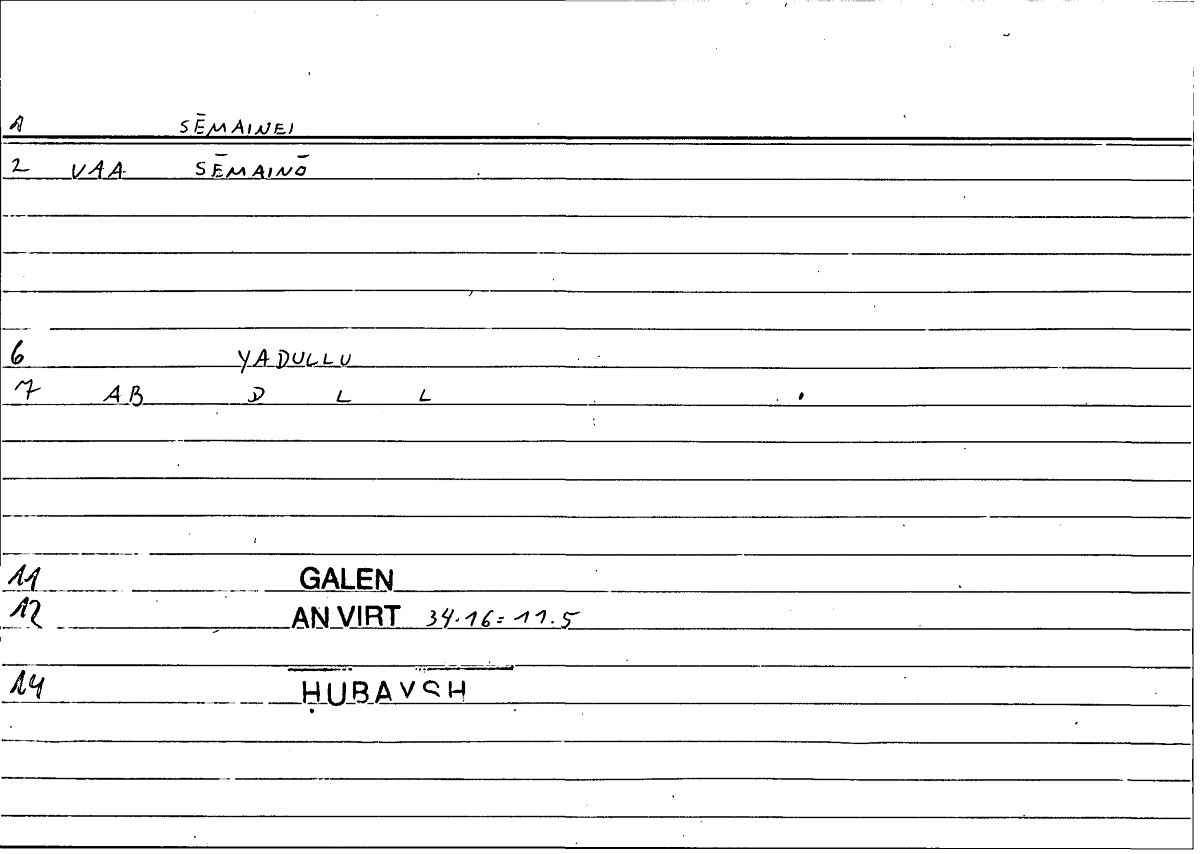 1 SĒMAINEI
2 VAA SĒMAINŌ
6 YADULLU
7 AB D L L
11 GALEN
12 AN VIRT 34.16=11.5
14 ḤUBAYSH